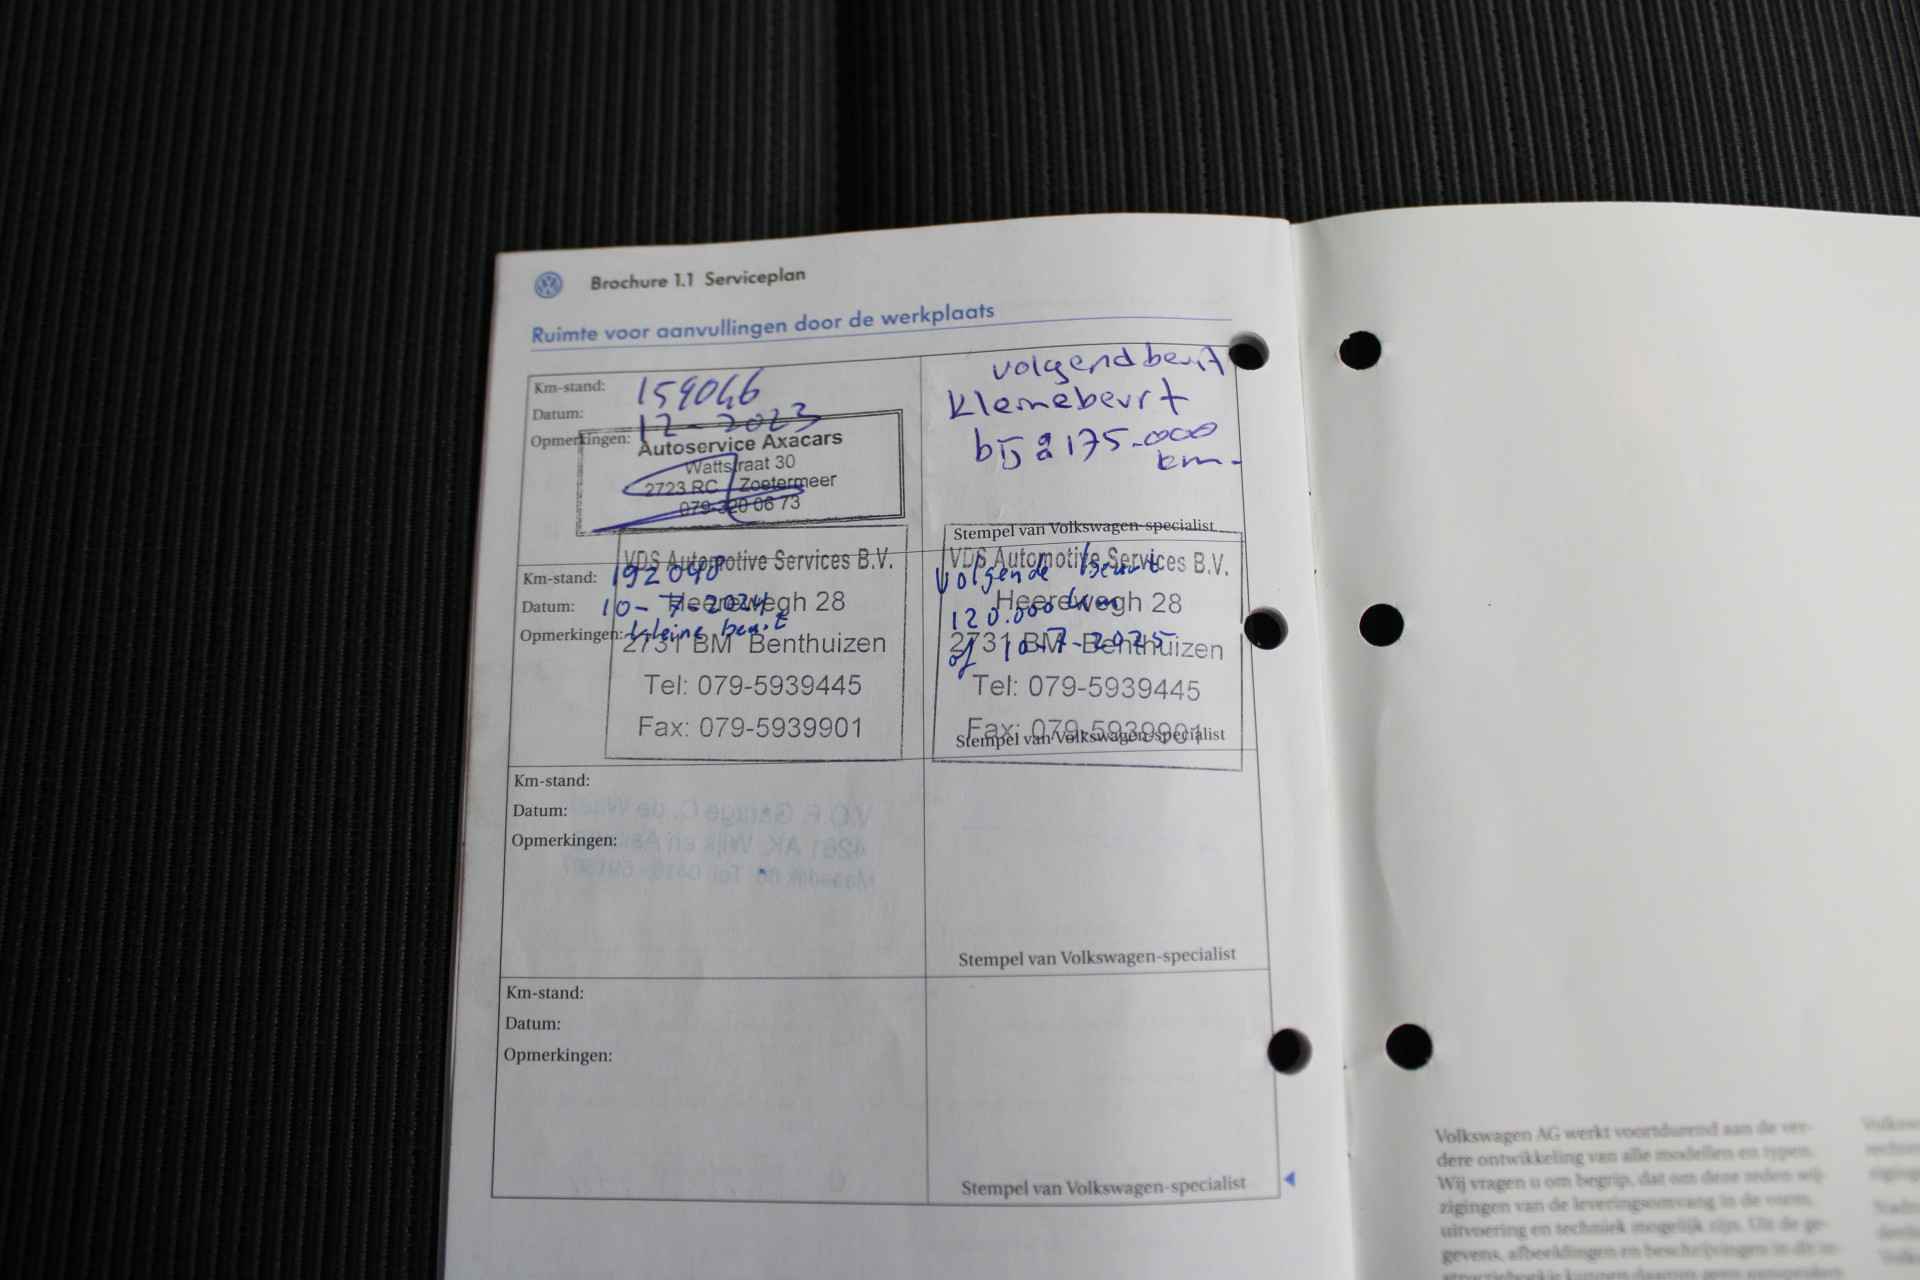 Brochure 1.1 Serviceplan
Ruimte voor aanvullingen door de werkplaats
Km-stand: 159046
Datum: 12-2023
Opmerkingen:
Autoservice Axacars
Wattstraat 30
2723 RC Zoetermeer
079-320 06 73
volgend beurt
kleinebeurt
bij 175.000
km-
Stempel van Volkswagen-specialist
Km-stand: 192048
Datum: 10-7-2024
Opmerkingen: kleine beurt
VDS Automotive Services B.V.
Heerewegh 28
2731 BM Benthuizen
Tel: 079-5939445
Fax: 079-5939901
Volgende beurt
120.000 km
of 10-7-2025
VDS Automotive Services B.V.
Heerewegh 28
2731 BM Benthuizen
Tel: 079-5939445
Fax: 079-5939901
Stempel van Volkswagen-specialist
Km-stand:
Datum:
Opmerkingen:
Stempel van Volkswagen-specialist
Km-stand:
Datum:
Opmerkingen:
Stempel van Volkswagen-specialist
Volkswagen AG werkt voortdurend aan de ver-
dere ontwikkeling van alle modellen en typen.
Wij vragen u om begrip, dat om deze reden wij-
zigingen van de leveringsomvang in de vorm,
uitvoering en techniek mogelijk zijn. Uit de ge-
gevens, afbeeldingen en beschrijvingen in dit in-